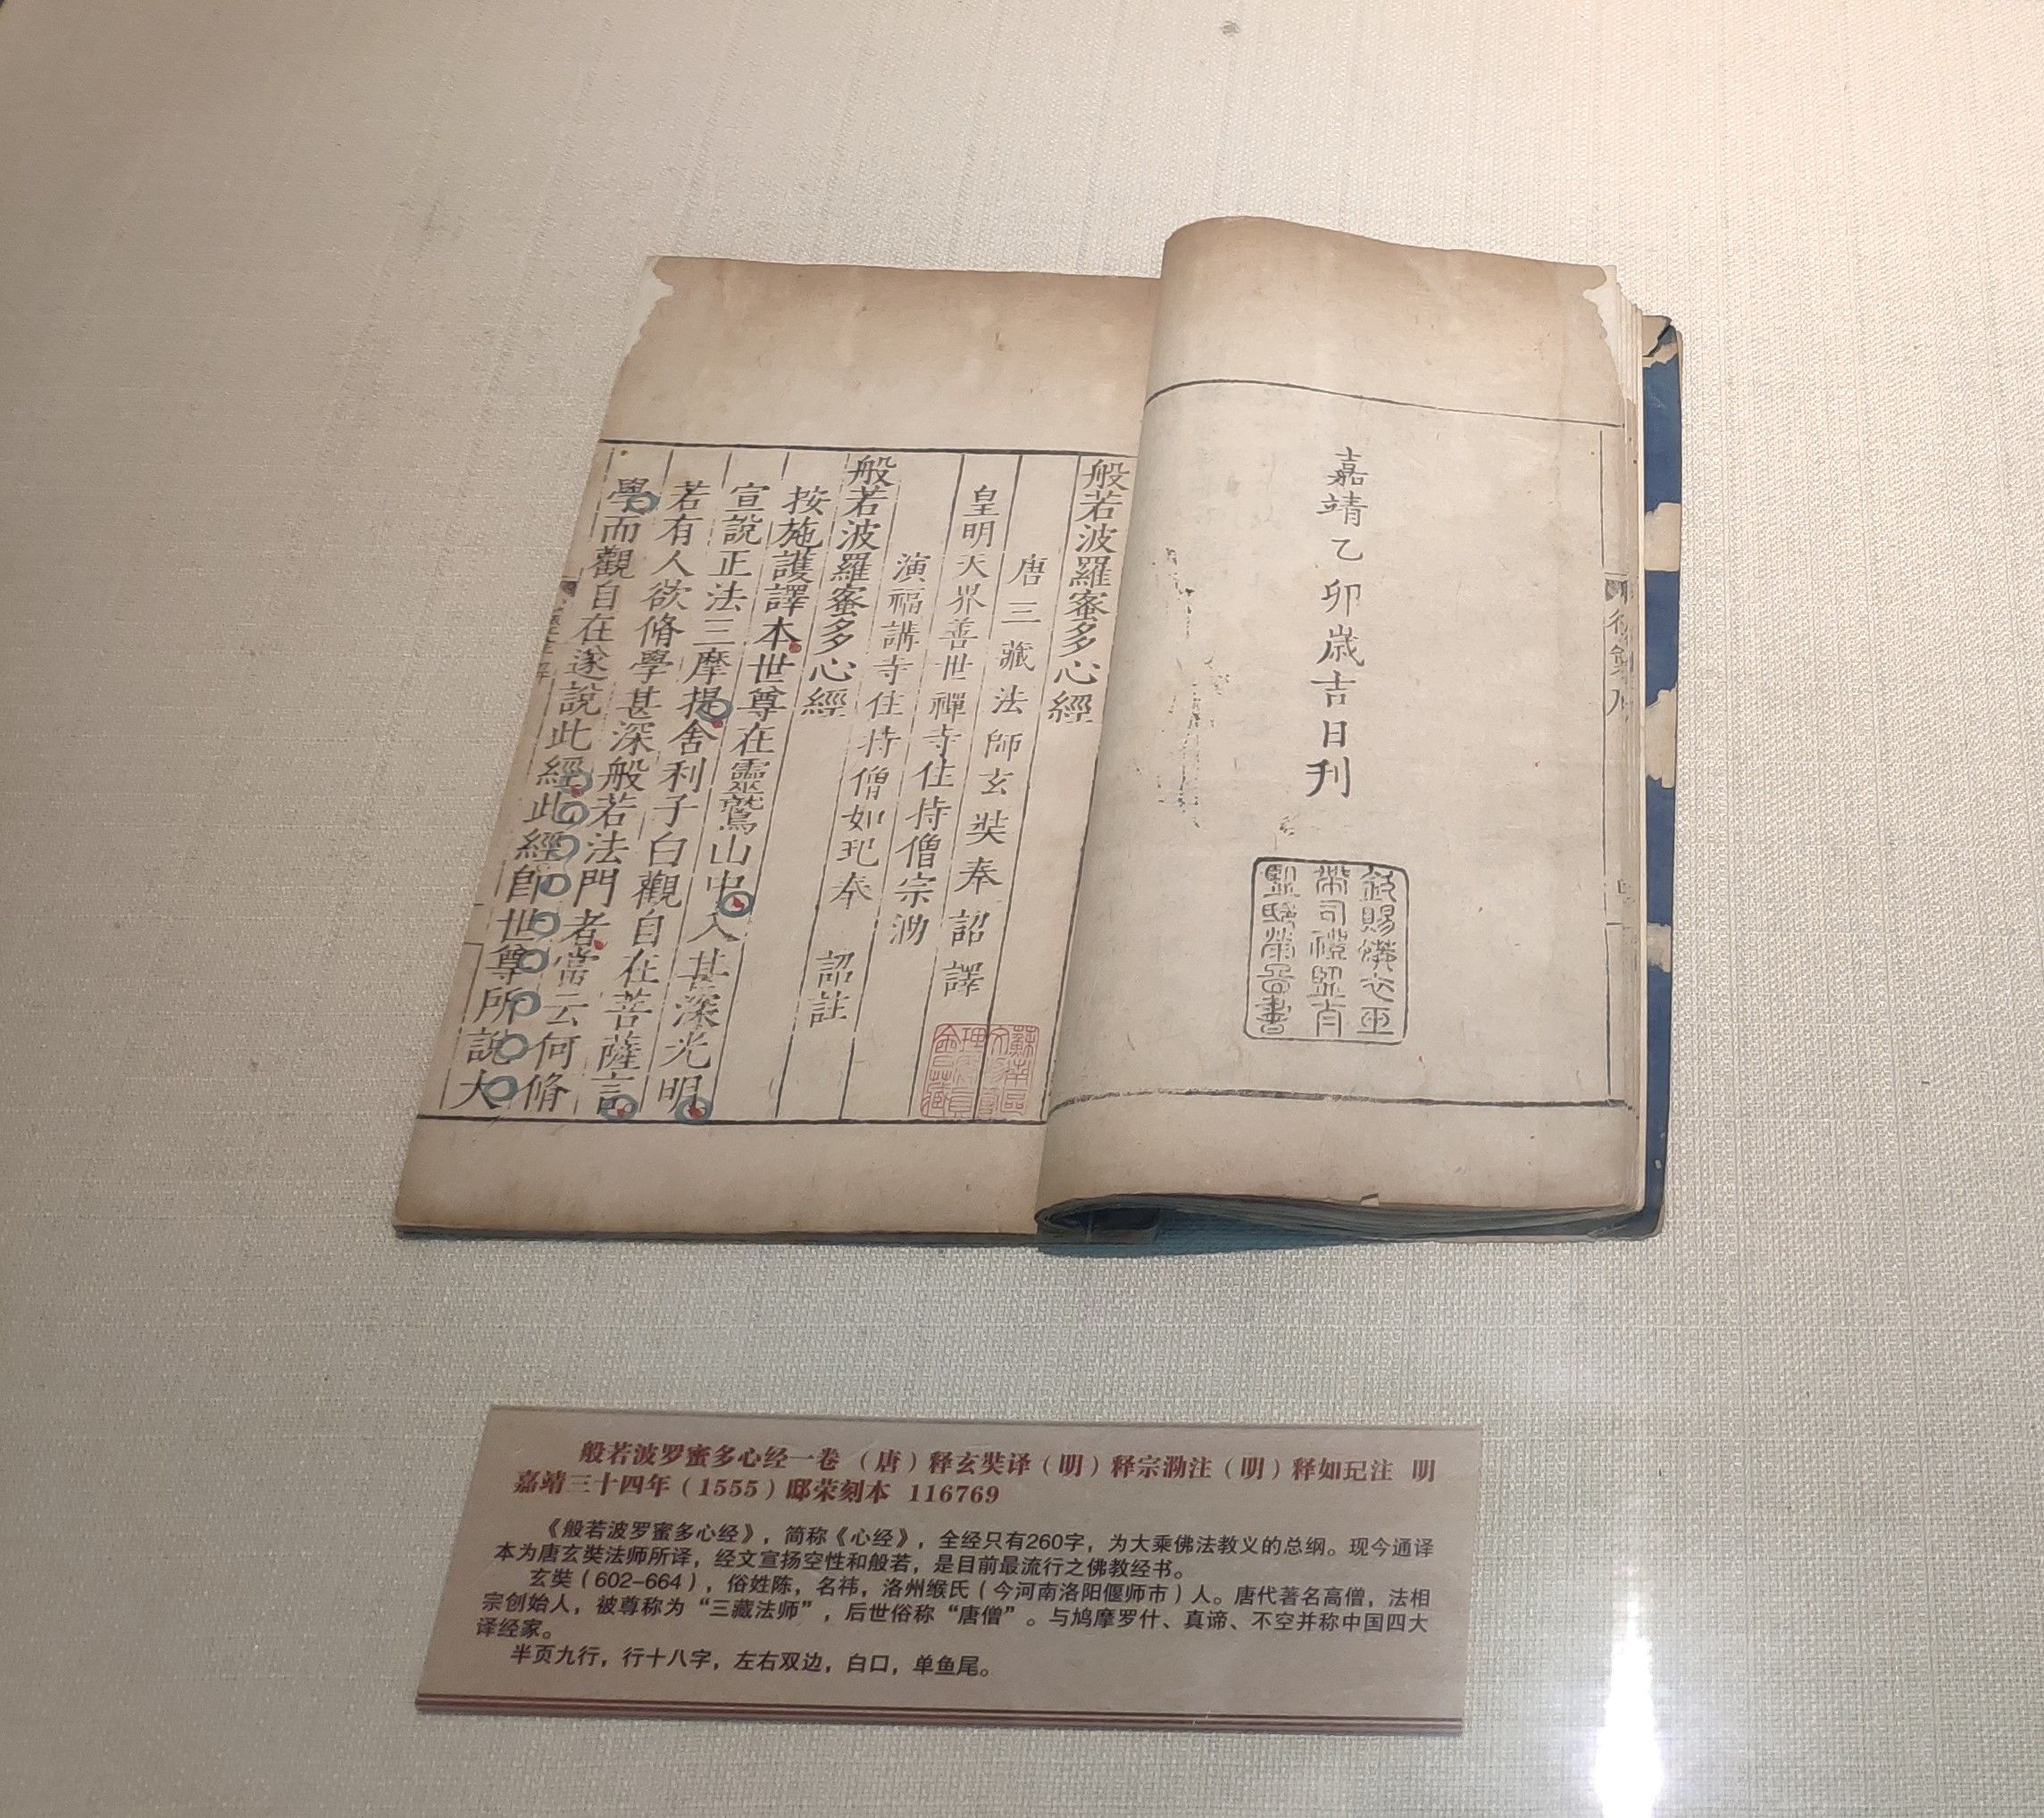 嘉靖乙卯歲吉日刊
般若波羅蜜多心經
唐三藏法師玄奘奉詔譯
皇明天界善世禪寺住持僧宗泐
演福講寺住持僧如玘奉詔註
般若波羅蜜多心經
按施護譯本世尊在靈鷲山中入甚深光明
宣說正法三摩提舍利子白觀自在菩薩言
若有人欲脩學甚深般若法門者當云何脩
學而觀自在遂說此經此經即世尊所說大
般若波罗蜜多心经一卷（唐）释玄奘译（明）释宗泐注（明）释如玘注 明
嘉靖三十四年（1555）邸荣刻本 116769
《般若波罗蜜多心经》，简称《心经》，全经只有260字，为大乘佛法教义的总纲。现今通译
本为唐玄奘法师所译，经文宣扬空性和般若，是目前最流行之佛教经书。
玄奘（602-664），俗姓陈，名祎，洛州缑氏（今河南洛阳偃师市）人。唐代著名高僧，法相
宗创始人，被尊称为“三藏法师”，后世俗称“唐僧”。与鸠摩罗什、真谛、不空并称中国四大
译经家。
半页九行，行十八字，左右双边，白口，单鱼尾。